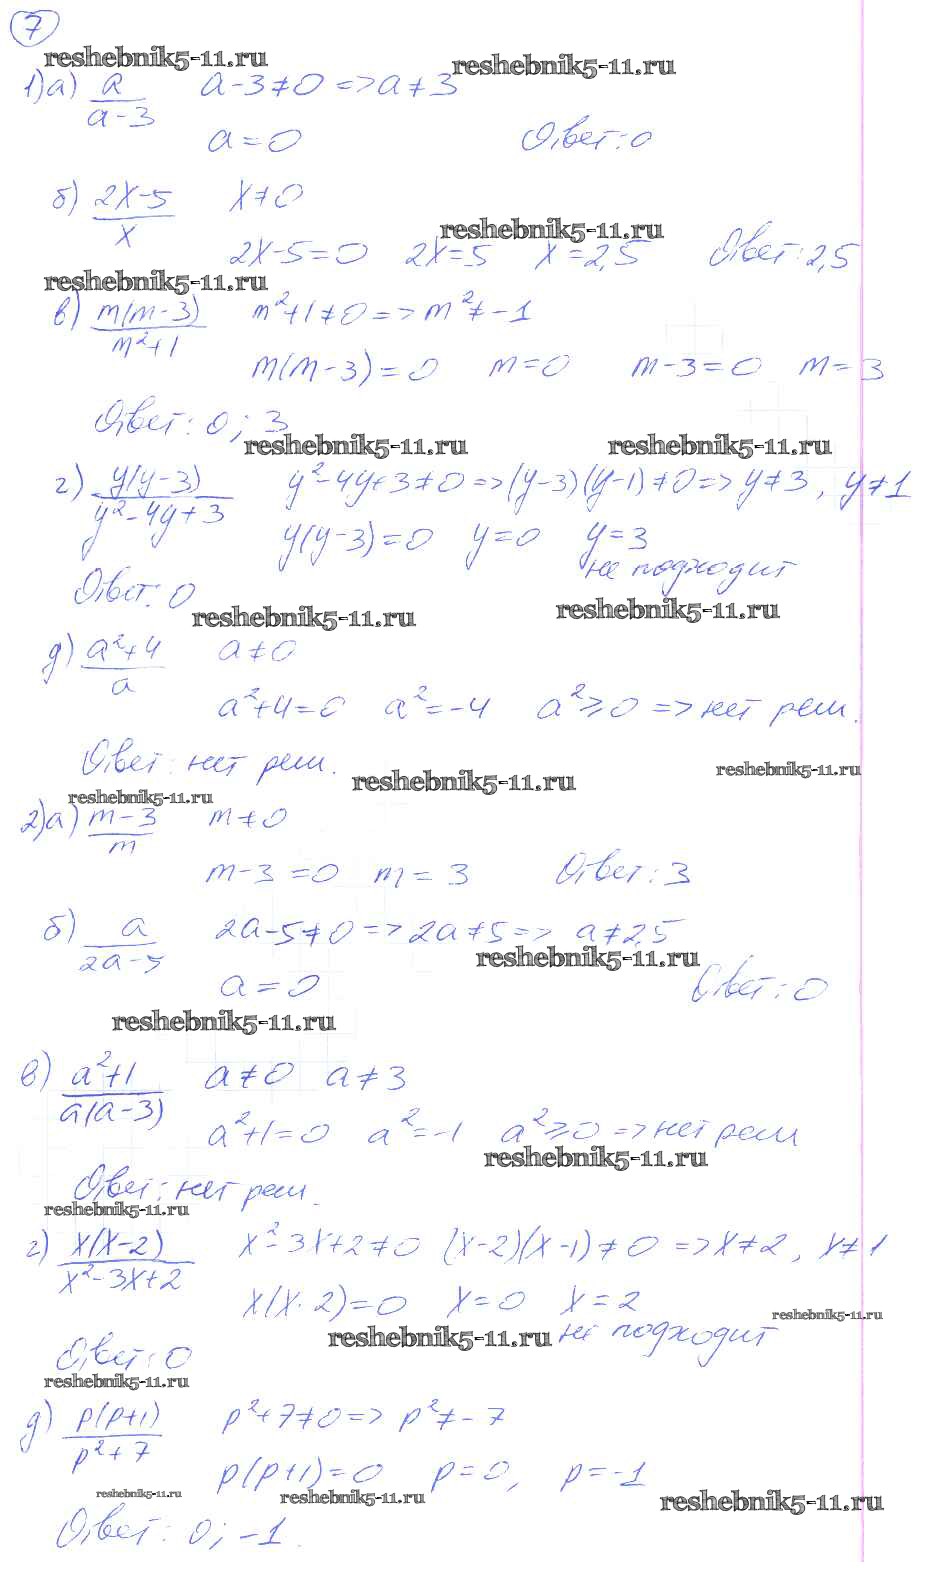 7
reshebnik5-11.ru reshebnik5-11.ru
1)а) a/(a-3) a-3≠0 => a≠3
a=0 Ответ: 0
б) (2x-5)/x x≠0
reshebnik5-11.ru
2x-5=0 2x=5 x=2,5 Ответ: 2,5
reshebnik5-11.ru
в) m(m-3)/(m²+1) m²+1≠0 => m²≠-1
m(m-3)=0 m=0 m-3=0 m=3
Ответ: 0; 3
reshebnik5-11.ru reshebnik5-11.ru
г) y(y-3)/(y²-4y+3) y²-4y+3≠0 => (y-3)(y-1)≠0 => y≠3, y≠1
y(y-3)=0 y=0 y=3
не подходит
Ответ: 0
reshebnik5-11.ru reshebnik5-11.ru
д) (a²+4)/a a≠0
a²+4=0 a²=-4 a²≥0 => нет реш.
Ответ: нет реш.
reshebnik5-11.ru reshebnik5-11.ru
reshebnik5-11.ru
2)а) (m-3)/m m≠0
m-3=0 m=3 Ответ: 3
б) a/(2a-5) 2a-5≠0 => 2a≠5 => a≠2,5
reshebnik5-11.ru
a=0 Ответ: 0
reshebnik5-11.ru
в) (a²+1)/(a(a-3)) a≠0 a≠3
a²+1=0 a²=-1 a²≥0 => нет реш
reshebnik5-11.ru
Ответ: нет реш.
reshebnik5-11.ru
г) x(x-2)/(x²-3x+2) x²-3x+2≠0 (x-2)(x-1)≠0 => x≠2, x≠1
x(x-2)=0 x=0 x=2
reshebnik5-11.ru
reshebnik5-11.ru не подходит
Ответ: 0
reshebnik5-11.ru
д) p(p+1)/(p²+7) p²+7≠0 => p²≠-7
p(p+1)=0 p=0, p=-1
reshebnik5-11.ru reshebnik5-11.ru reshebnik5-11.ru
Ответ: 0; -1.